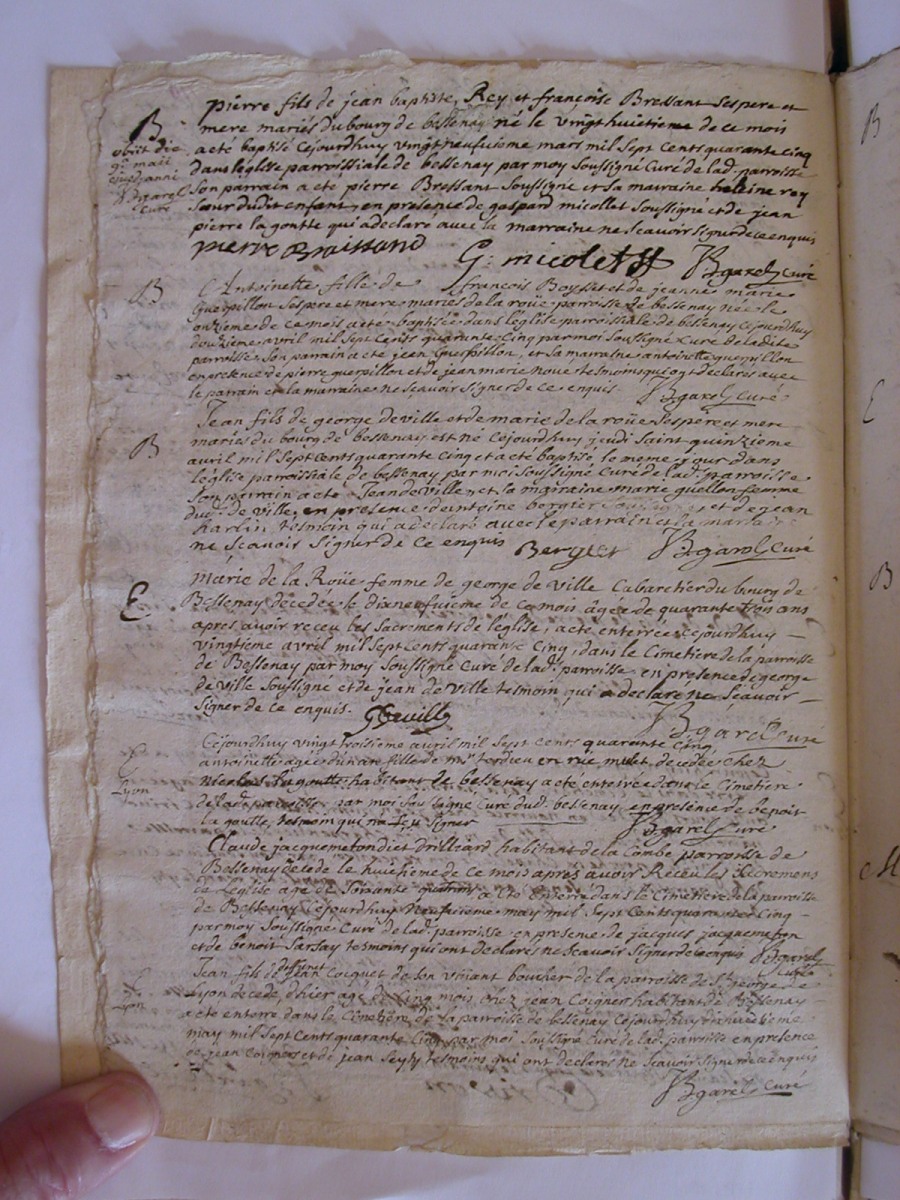 pierre fils de jean baptiste Rey et françoise Bressant ses pere et
B
mere mariés du bourg de bessenay né le vingt huitieme de ce mois
obiit die
a ete baptisé cejourdhuy vingt neufvieme mars mil sept cents quarante cinq
9ª maii
dans leglise parroissialle de bessenay par moy soussigné Curé de lad. parroisse
ejusd anni
son parrain a ete pierre Bressant soussigné et sa marraine heleine rey
Bgarel
sœur dudit enfant, en presence de gaspard micollet soussigné et de jean
Curé
pierre la goutte qui a declaré avec la marraine ne scavoir signer de ce enquis
pierre Braissand G: micolet Bgarel Curé
B
Antoinette fille de françois Boysset et de jeanne marie
Guerpillon ses pere et mere mariés de la roüe parroisse de bessenay neé le
onzieme de ce mois a ete baptisée dans leglise parroissialle de bessenay cejourdhuy
douzieme avril mil sept cents quarante cinq par moi soussigné Curé de ladite
parroisse son parrain a ete jean Guerpillon, et sa marraine antoinette guerpillon
en presence de pierre guerpillon et de jean marie temoins qui ont declarés avec
le parrain et la marraine ne scavoir signer de ce enquis. Bgarel Curé
Jean fils de george de ville et de marie de la roüe ses pere et mere
B
mariés du bourg de bessenay est né cejourdhuy jeudi saint quinzieme
avril mil sept cents quarante cinq et a eté baptisé le meme jour dans
leglise parroissialle de bessenay par moi soussigné Curé de lad. parroisse
son parrain a ete Jean de ville et sa marraine marie guellon femme
dud. de ville, en presence dentoine bergier et de jean
tesmoin qui a declaré avec le parrain et la
ne scavoir signer de ce enquis Bergier Bgarel Curé
E
Marie de la Roüe femme de george de ville Cabaretier du bourg de
Bessenay decedeé le dixneufvieme de ce mois ageé de quarante trois ans
apres avoir receu les sacrements de leglise, a eté enterreé cejourdhuy
vingtieme avril mil sept cents quarante cinq, dans le Cimetiere de la parroisse
de Bessenay par moy soussigné Curé de lad. parroisse en presence de george
de ville soussigné et de jean de ville tesmoin qui a declaré ne scavoir
signer de ce enquis. GDeville Bgarel Curé
Cejourdhuy vingt troisieme avril mil sept cents quarante cinq
E
Lyon
antoinette agée dun an fille de en rüe decedée chez
nicolas lagoutte habitant de bessenay a eté enterrée dans le Cimetiere
de lad. parroisse par moi soussigné Curé dud. bessenay en presence de benoit
la goutte, tesmoin qui na sçu signer Bgarel Curé
Claude jacquemeton dict drilliard habitant de la Combe parroisse de
Bessenay decedé le huitieme de ce mois apres avoir Receu les sacremens
de leglise agé de soixante a eté enterré dans le Cimetiere de la parroisse
de Bessenay cejourdhuy neufvieme may mil sept cents quarante cinq
par moy soussigné Curé de lad. parroisse en presense de jacques jacquemeton
et de benoit sarsay tesmoins qui ont declarés ne scavoir signer de ce enquis Bgarel
Curé
Jean fils de deffunt jean Cocquet de son vivant boucher de la parroisse de St george de
E
Lyon
Lyon decedé dhier agé de cinq mois chez jean Coignet habitant de Bessenay
a eté enterré dans le Cimetiere de la parroisse de bessenay cejourdhuy dixhuictieme
may mil sept cents quarante cinq par moi soussigné Curé de lad. parroisse en presence
de jean Coignet et de jean tesmoins qui ont declarés ne scavoir signer de ce enquis
Bgarel Curé
B
E
B